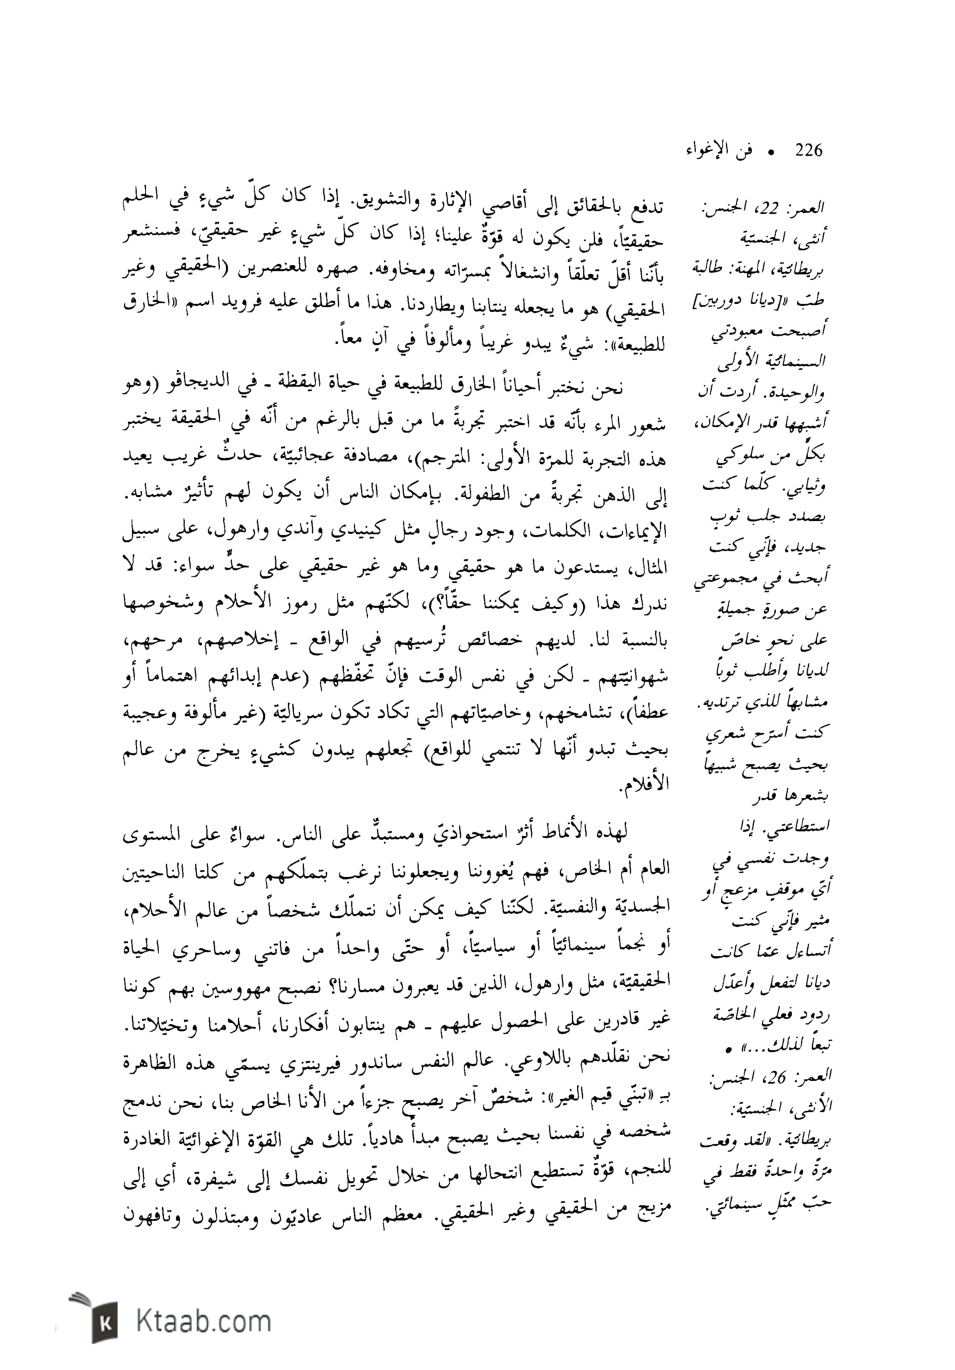 226 • فن الإغواء
تدفع بالحقائق إلى أقاصي الإثارة والتشويق. إذا كان كلّ شيءٍ في الحلم
حقيقيّاً، فلن يكون له قوّةٌ علينا؛ إذا كان كلّ شيءٍ غير حقيقيّ، فسنشعر
بأنّنا أقلّ تعلّقاً وانشغالاً بمسرّاته ومخاوفه. صهره للعنصرين (الحقيقي وغير
الحقيقي) هو ما يجعله ينتابنا ويطاردنا. هذا ما أطلق عليه فرويد اسم «الخارق
للطبيعة»: شيءٌ يبدو غريباً ومألوفاً في آنٍ معاً.
نحن نختبر أحياناً الخارق للطبيعة في حياة اليقظة ـ في الديجاڤو (وهو
شعور المرء بأنّه قد اختبر تجربةً ما من قبل بالرغم من أنّه في الحقيقة يختبر
هذه التجربة للمرّة الأولى: المترجم)، مصادفة عجائبيّة، حدثٌ غريب يعيد
إلى الذهن تجربةً من الطفولة. بإمكان الناس أن يكون لهم تأثيرٌ مشابه.
الإيماءات، الكلمات، وجود رجالٍ مثل كينيدي وآندي وارهول، على سبيل
المثال، يستدعون ما هو حقيقي وما هو غير حقيقي على حدٍّ سواء: قد لا
ندرك هذا (وكيف يمكننا حقّاً؟)، لكنّهم مثل رموز الأحلام وشخوصها
بالنسبة لنا. لديهم خصائص تُرسيهم في الواقع ـ إخلاصهم، مرحهم،
شهوانيّتهم ـ لكن في نفس الوقت فإنّ تحفّظهم (عدم إبدائهم اهتماماً أو
عطفاً)، تشامخهم، وخاصيّاتهم التي تكاد تكون سرياليّة (غير مألوفة وعجيبة
بحيث تبدو أنّها لا تنتمي للواقع) تجعلهم يبدون كشيءٍ يخرج من عالم
الأفلام.
لهذه الأنماط أثرٌ استحواذيّ ومستبدٌّ على الناس. سواءٌ على المستوى
العام أم الخاص، فهم يُغووننا ويجعلوننا نرغب بتملّكهم من كلتا الناحيتين
الجسديّة والنفسيّة. لكنّنا كيف يمكن أن نتملّك شخصاً من عالم الأحلام،
أو نجماً سينمائيّاً أو سياسيّاً، أو حتّى واحداً من فاتني وساحري الحياة
الحقيقيّة، مثل وارهول، الذين قد يعبرون مسارنا؟ نصبح مهووسين بهم كوننا
غير قادرين على الحصول عليهم ـ هم ينتابون أفكارنا، أحلامنا وتخيّلاتنا.
نحن نقلّدهم باللاوعي. عالم النفس ساندور فيرينتزي يسمّي هذه الظاهرة
بـ «تبنّي قيم الغير»: شخصٌ آخر يصبح جزءاً من الأنا الخاص بنا، نحن ندمج
شخصه في نفسنا بحيث يصبح مبدأً هادياً. تلك هي القوّة الإغوائيّة الغادرة
للنجم، قوّةٌ تستطيع انتحالها من خلال تحويل نفسك إلى شيفرة، أي إلى
مزيج من الحقيقي وغير الحقيقي. معظم الناس عاديّون ومبتذلون وتافهون
العمر: 22، الجنس:
أنثى، الجنسيّة
بريطانيّة، المهنة: طالبة
طبّ «[ديانا دوربين]
أصبحت معبودتي
السينمائيّة الأولى
والوحيدة. أردت أن
أشبهها قدر الإمكان،
بكلٍّ من سلوكي
وثيابي. كلّما كنت
بصدد جلب ثوبٍ
جديد، فإنّي كنت
أبحث في مجموعتي
عن صورةٍ جميلةٍ
على نحوٍ خاصّ
لديانا وأطلب ثوباً
مشابهاً للذي ترتديه.
كنت أسرّح شعري
بحيث يصبح شبيهاً
بشعرها قدر
استطاعتي. إذا
وجدت نفسي في
أيّ موقفٍ مزعجٍ أو
مثير فإنّي كنت
أتساءل عمّا كانت
ديانا لتفعل وأعدّل
ردود فعلي الخاصّة
تبعاً لذلك...» •
العمر: 26، الجنس:
الأنثى، الجنسيّة:
بريطانيّة. «لقد وقعت
مرّةً واحدةً فقط في
حبّ ممثّلٍ سينمائيّ.
K Ktaab.com